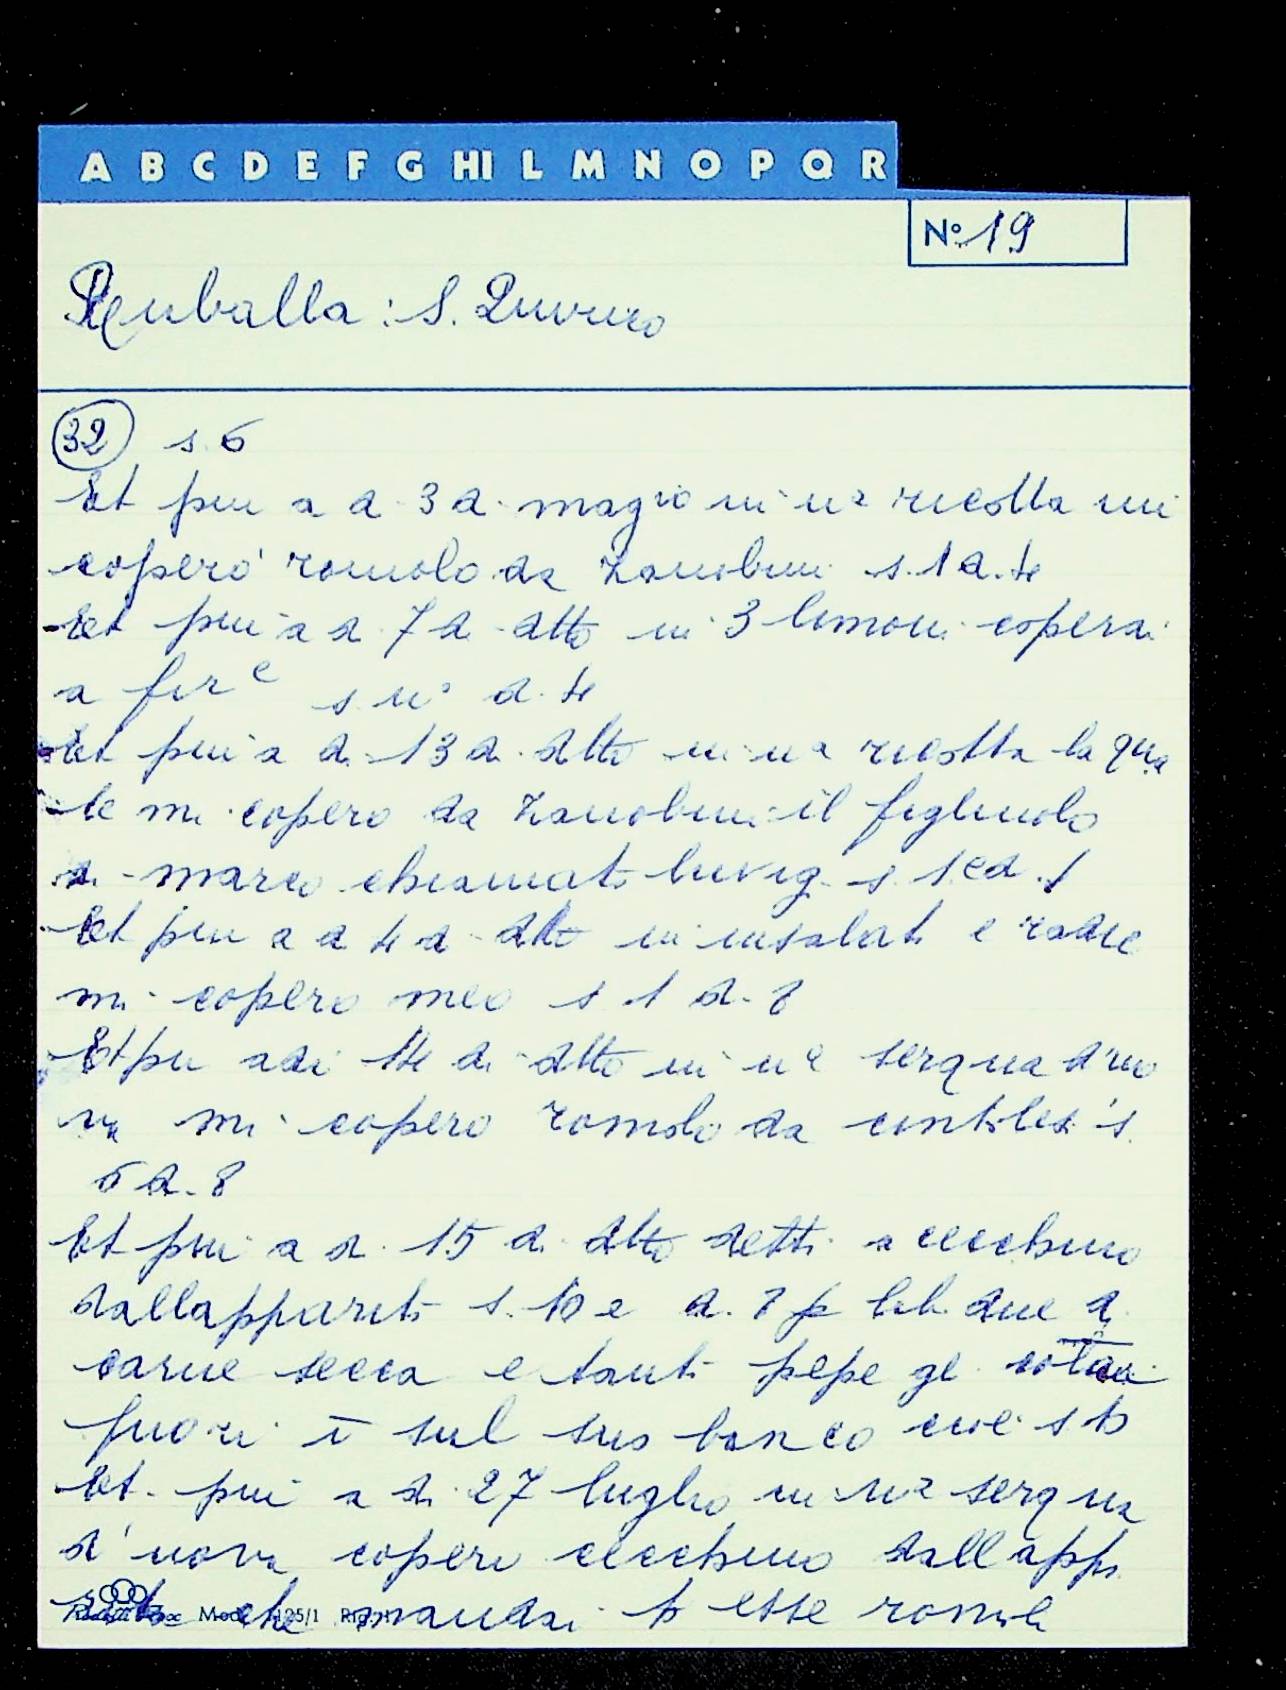 A B C D E F G HI L M N O P Q R
No. 19
Ruballa : S. Quirico
32 s. 6
Et piu a d 3 d. magio in na ricotta mi
coperò romolo da Zanobini s. 1 d. 4
Et piu a d 7 d. dtto in 3 limoni coperai
a fire s. d. 4
Et piu a d. 13 d. dtto in na ricotta la qua
le mi copero da Zanobini il figliuolo
di marco chiamato s. 1 e d. 1
Et piu a d 4 d. dtto in insalata e radice
mi copero meo s 1 d. 8
Et piu adi 14 di dtto in na serqua d'uo
va mi copero romolo da s.
6 d. 8
Et piu a d. 15 d. dtto detti a cecchino
dallapparita s. 10 e d. 8 p libb due d
carne secca e tanto pepe gl
fuori ī sul suo banco cioè s 10
Et piu a di 27 luglio in na serqua
d'uova copero cecchino dall app
che mandai p esse romolo
Mod. 125/1